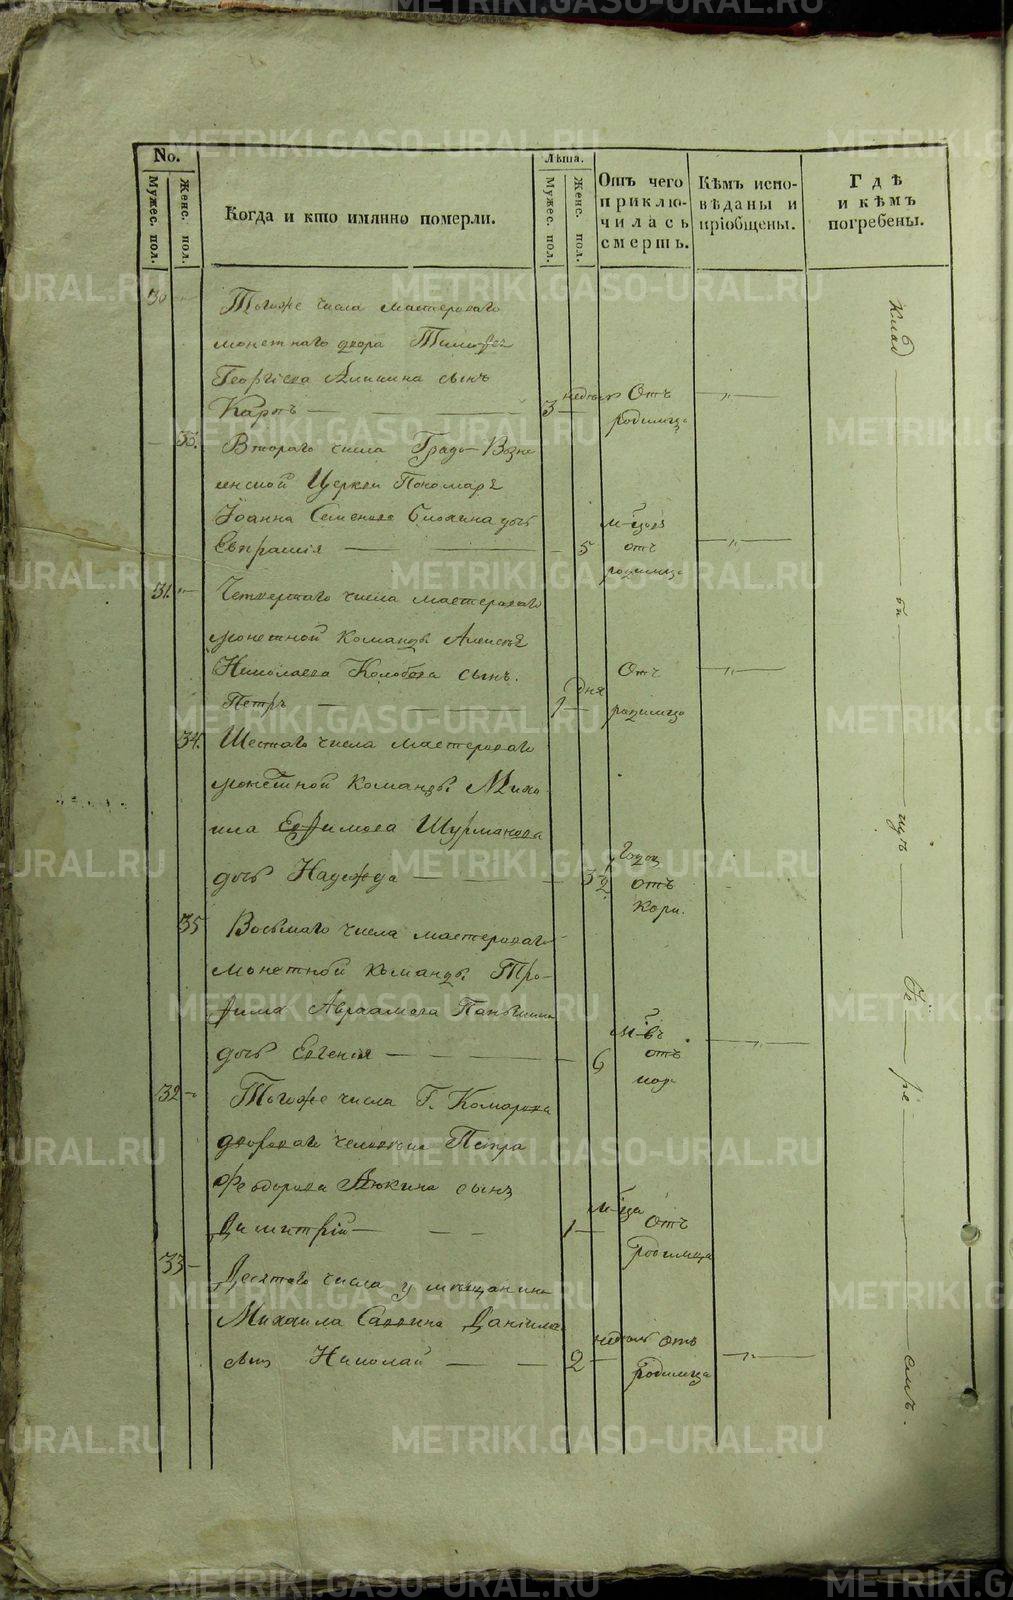 No.
Мужес. пол.
Женс. пол.
Когда и кто имянно померли.
Лѣта.
Мужес. пол.
Женс. пол.
Отъ чего
приклю-
чилась
смерть.
Кѣмъ испо-
вѣданы и
пріобщены.
Гдѣ
и кѣмъ
погребены.
30 Тогоже числа мастероваго
монетнаго двора Тимофея
Георгіева сынъ
Карпъ — 3 недель Отъ
родимца
33. Втораго числа Градо-Возне
сенской Церкви Пономаря
Іоанна Семенова дочь
Евпраксія — 5 м-цовъ
отъ
родимца
31. Четвертаго числа мастероваго
монетной команды Алексея
Николаева Колобова сынъ.
Петръ — 1 дня Отъ
родимца
34. Шестаго числа мастероваго
монетной команды Миха
ила Ефимова Шурманова
дочь Надежда — 3 ½ Годов
отъ
кори.
35 Восьмаго числа мастероваго
монетной команды Тро-
фима Авраамова
дочь Евгенія — 6
отъ
32 Тогоже числа Г. Комарова
двороваго человека Петра
Феодорова сынъ
Димитрій — 1 м-ца Отъ
родимца
33 Десятаго числа у мещанина
Михаила Саввина Данилова
сынъ Николай — 2 недель отъ
родимца
Клад
би
щѣ